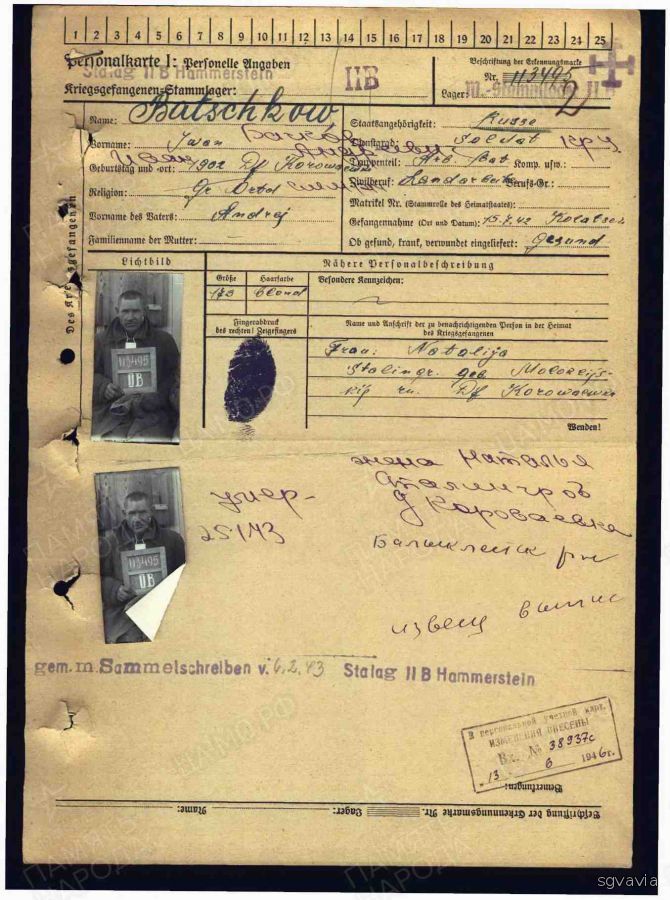 1 2 3 4 5 6 7 8 9 10 11 12 13 14 15 16 17 18 19 20 21 22 23 24 25
Personalkarte I: Personelle Angaben
Stalag II B Hammerstein
Kriegsgefangenen-Stammlager:
IIB
Beschriftung der Erkennungsmarke
Nr. 113495
Lager: M.-Stammlager II B
2
Name: Batschkow
Бачков
Vorname: Iwan
Иван Андреевич
Geburtstag und -ort: 1902 Df Korowaewka
Religion: Gr. Ortod
Vorname des Vaters: Andrej
Familienname der Mutter:
Staatsangehörigkeit: Russe
Dienstgrad: Soldat
Truppenteil: Arb. Bat Komp. usw.:
Zivilberuf: Landarbeiter Berufs-Gr.:
Matrikel Nr. (Stammrolle des Heimatstaates):
Gefangennahme (Ort und Datum): 15.7.42
Ob gesund, krank, verwundet eingeliefert: Gesund
Des Kriegsgefangenen
Lichtbild
Nähere Personalbeschreibung
Größe
Haarfarbe
Besondere Kennzeichen:
173
blond
Fingerabdruck
des rechten! Zeigefingers
Name und Anschrift der zu benachrichtigenden Person in der Heimat
des Kriegsgefangenen
Frau: Natalija
Stalingr. geb.
Df Korowaewka
Wenden!
113495
IIB
113495
IIB
жена Наталья
Сталингров
д Короваевка
Балыклейск рн
умер-
25/43
извещ выпис
gem. m. Sammelschreiben v. 6.2.43 Stalag II B Hammerstein
В персональной учетной карт.
ИЗМЕНЕНИЯ ВНЕСЕНЫ
Вх. № 38937с
13 6 1946г.
Bemerkungen:
Beschriftung der Erkennungsmarke Nr. Lager: Name:
ПАМЯТЬ НАРОДА
sgvavia